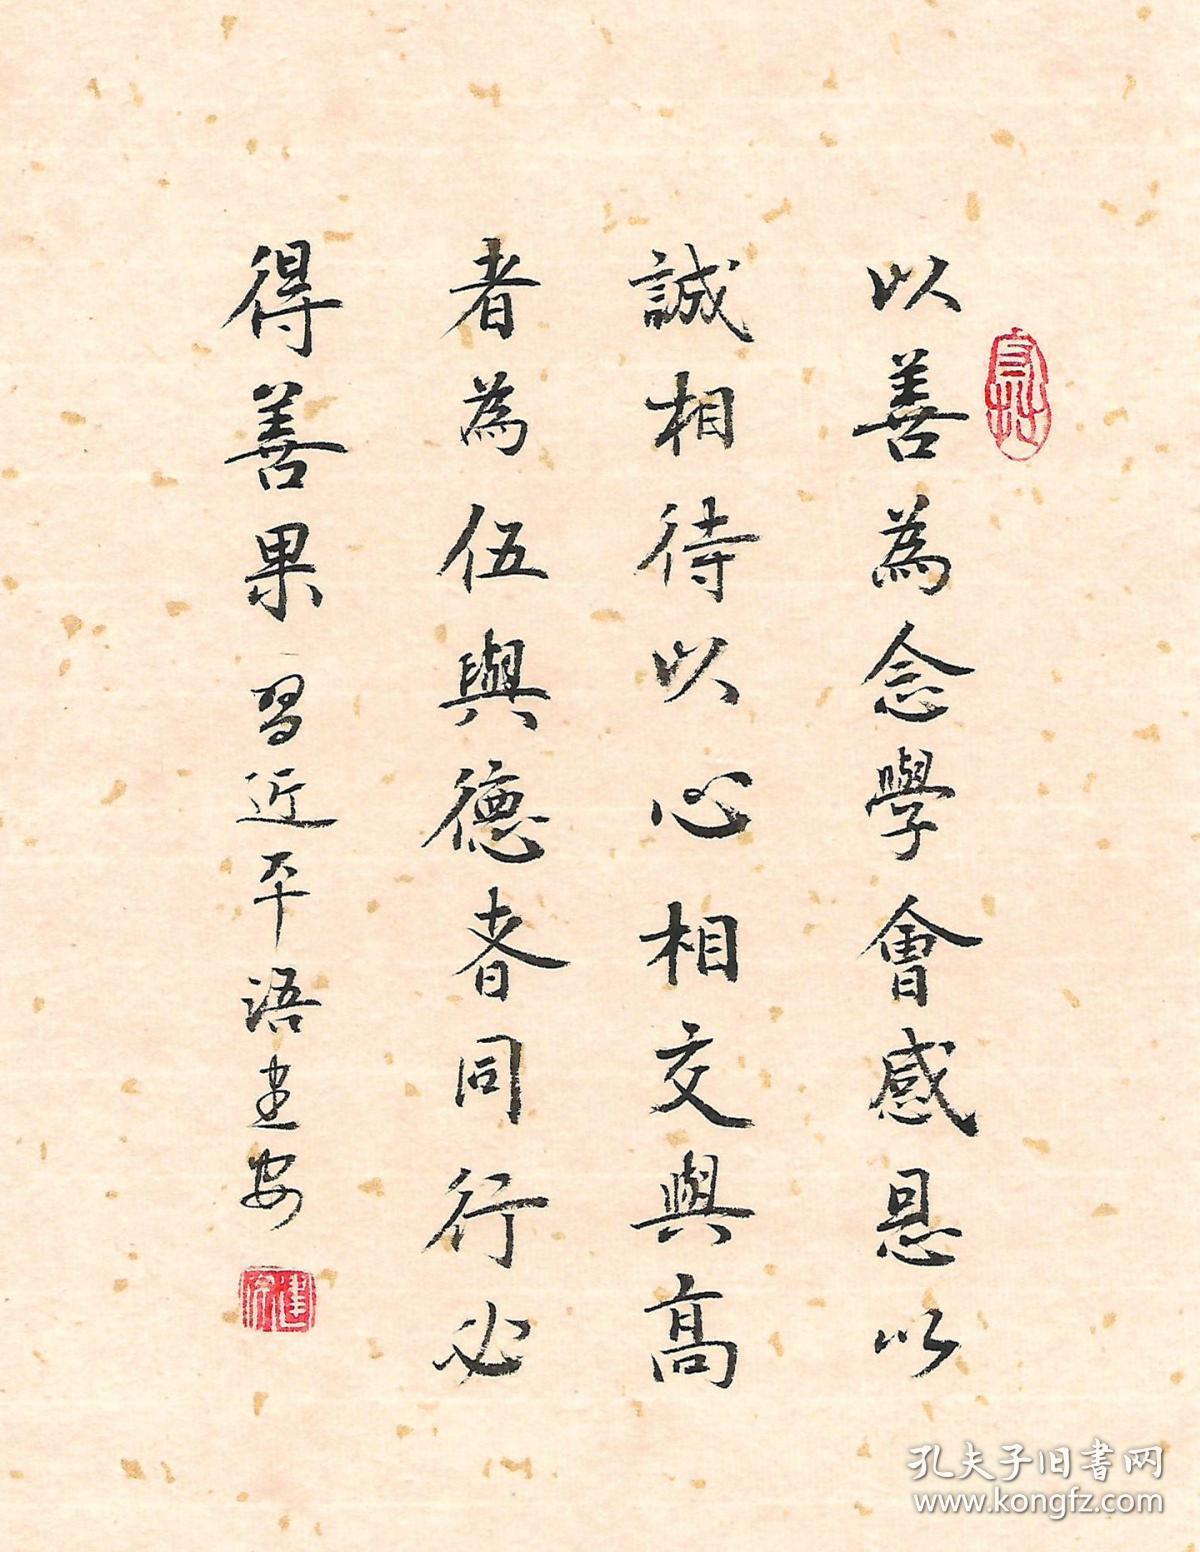 以善為念學會感恩以
誠相待以心相交與高
者為伍與德者同行必
得善果 習近平语建安
孔夫子旧書网
www.kongfz.com